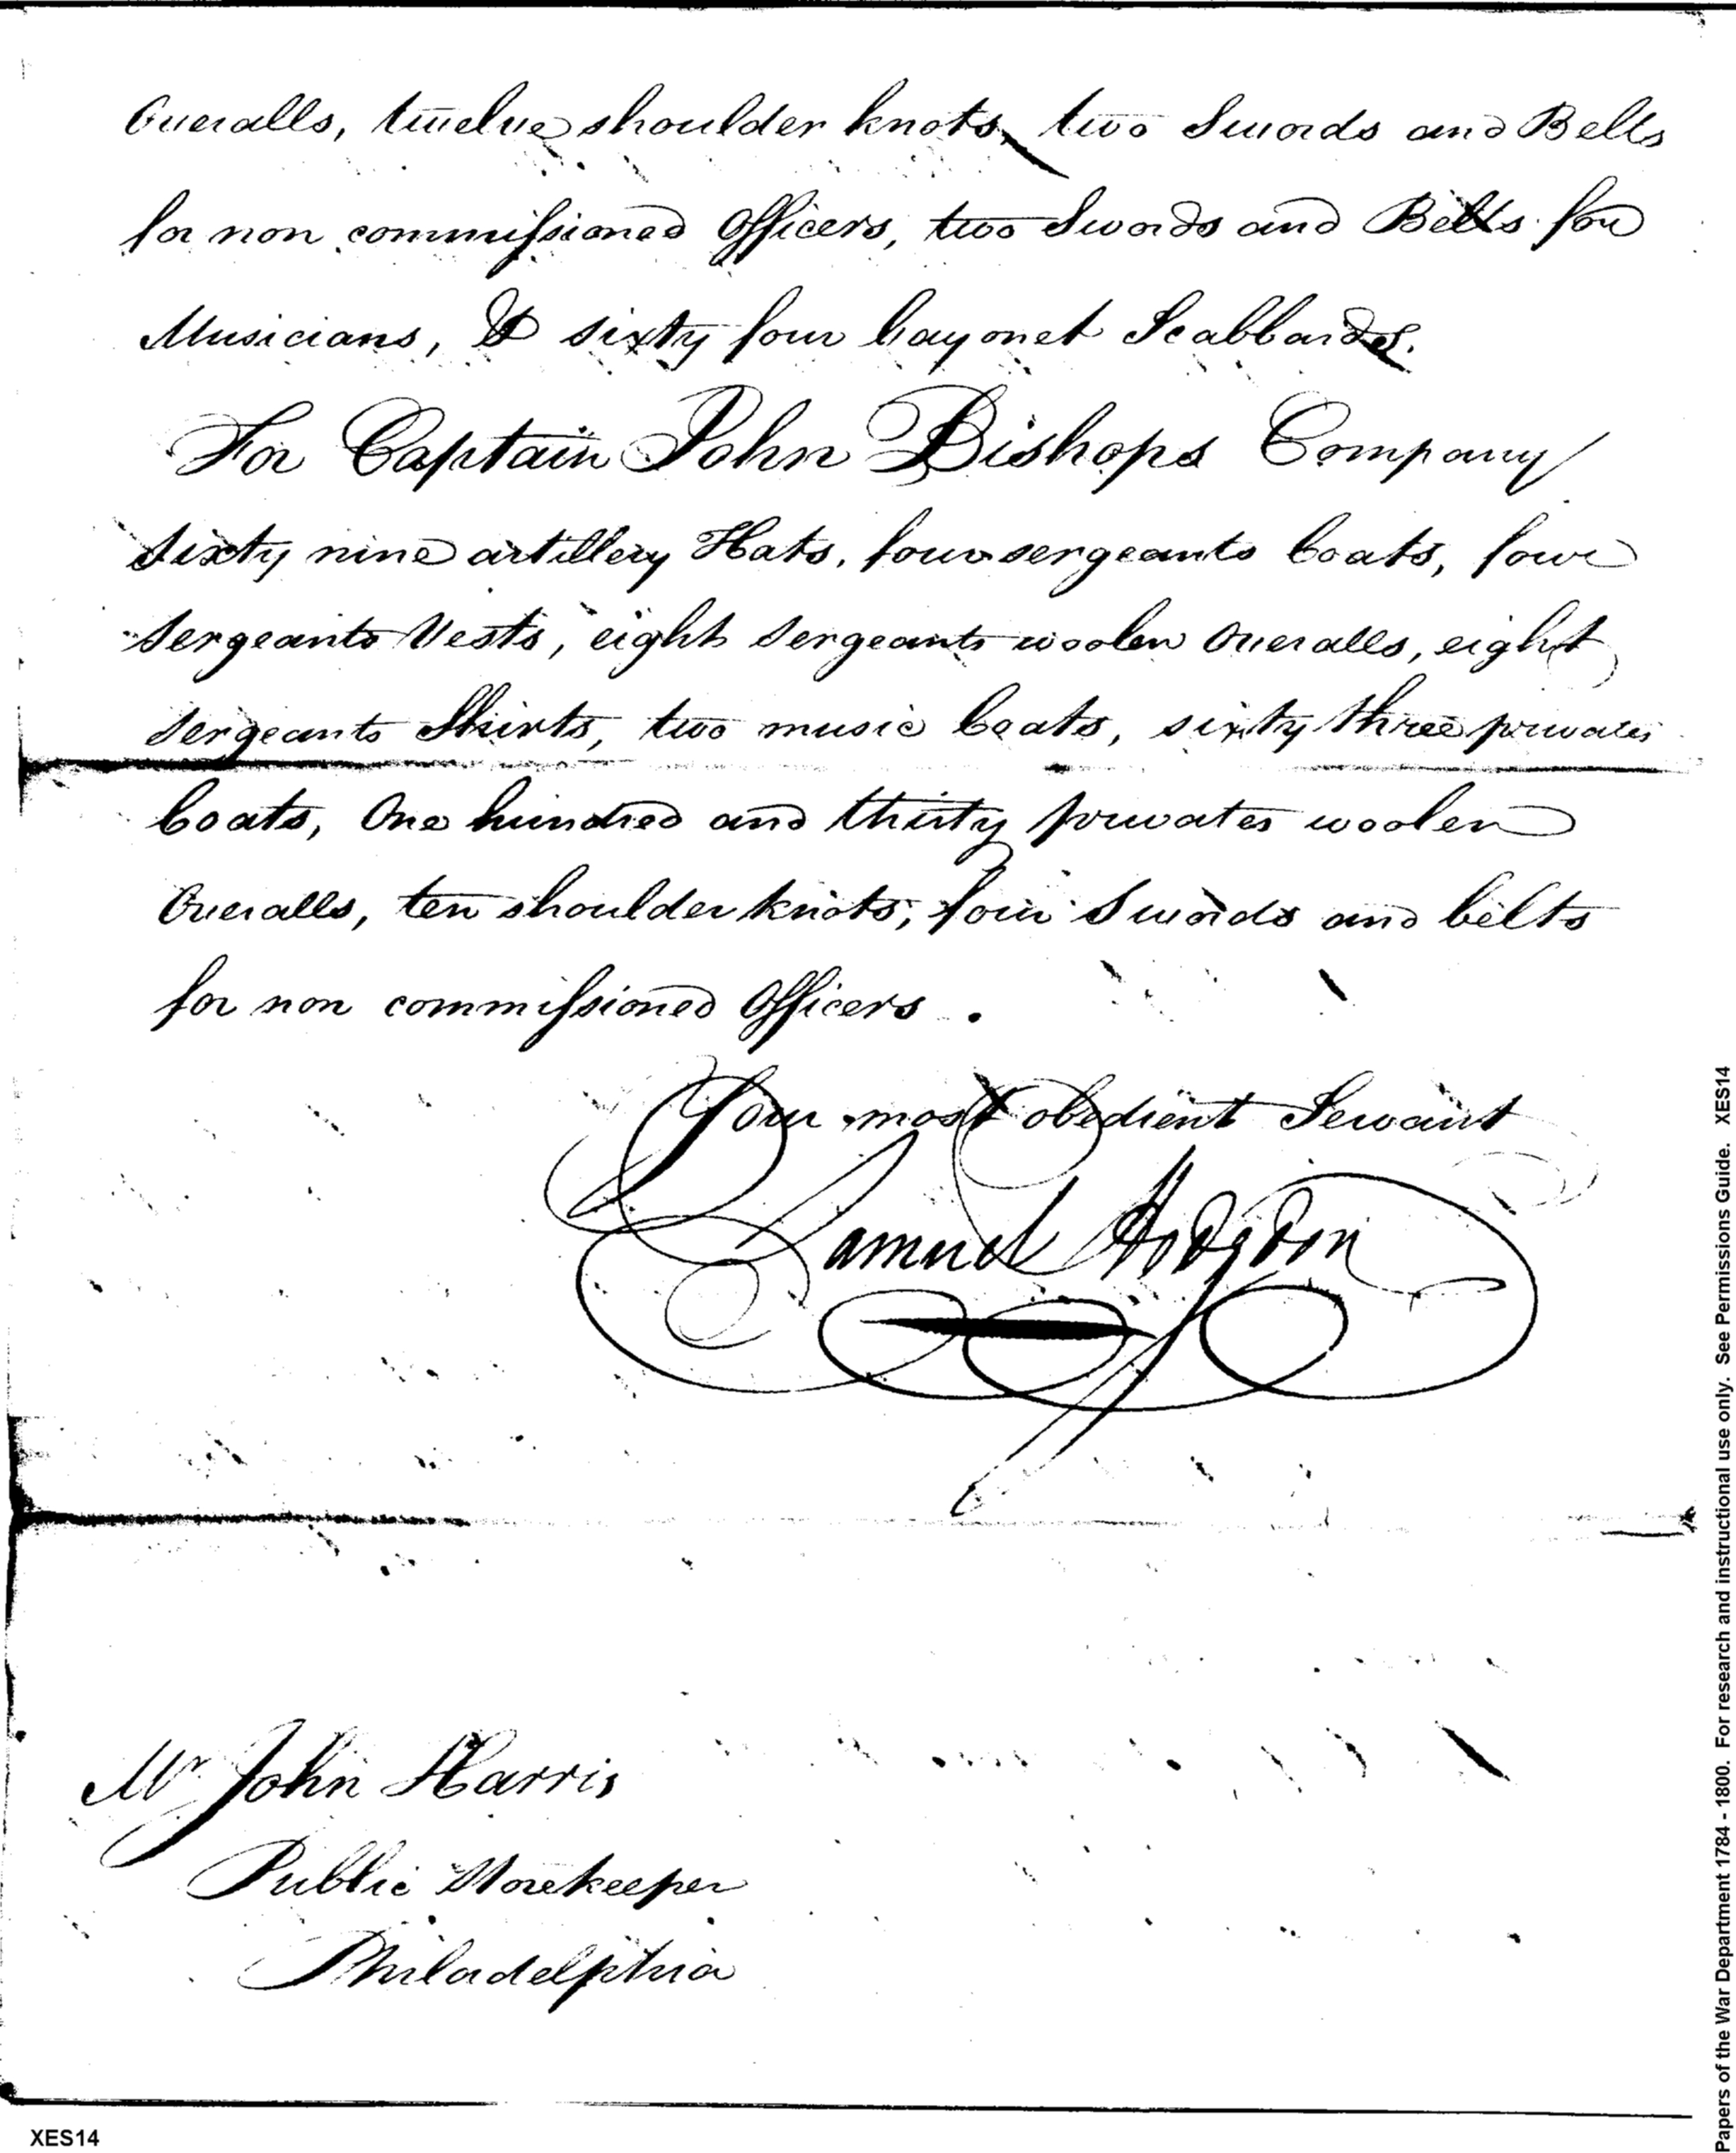 Overalls, twelve shoulder knots, two Swords and Belts
for non commissioned Officers, two Swords and Belts for
Musicians, & sixty four bayonet Scabbards.
For Captain John Bishops Company
Sixty nine artillery Hats, four sergeants Coats, four
Sergeants Vests, eight Sergeants woolen Overalls, eight
Sergeants Shirts, two music Coats, sixty three privates
Coats, One hundred and thirty privates woolen
Overalls, ten shoulder knots, four Swords and belts
for non commissioned Officers.
Your most obedient Servant
Samuel Hodgdon
Mr John Harris
Public Storekeeper
Philadelphia
XES14
Papers of the War Department 1784 - 1800. For research and instructional use only. See Permissions Guide. XES14